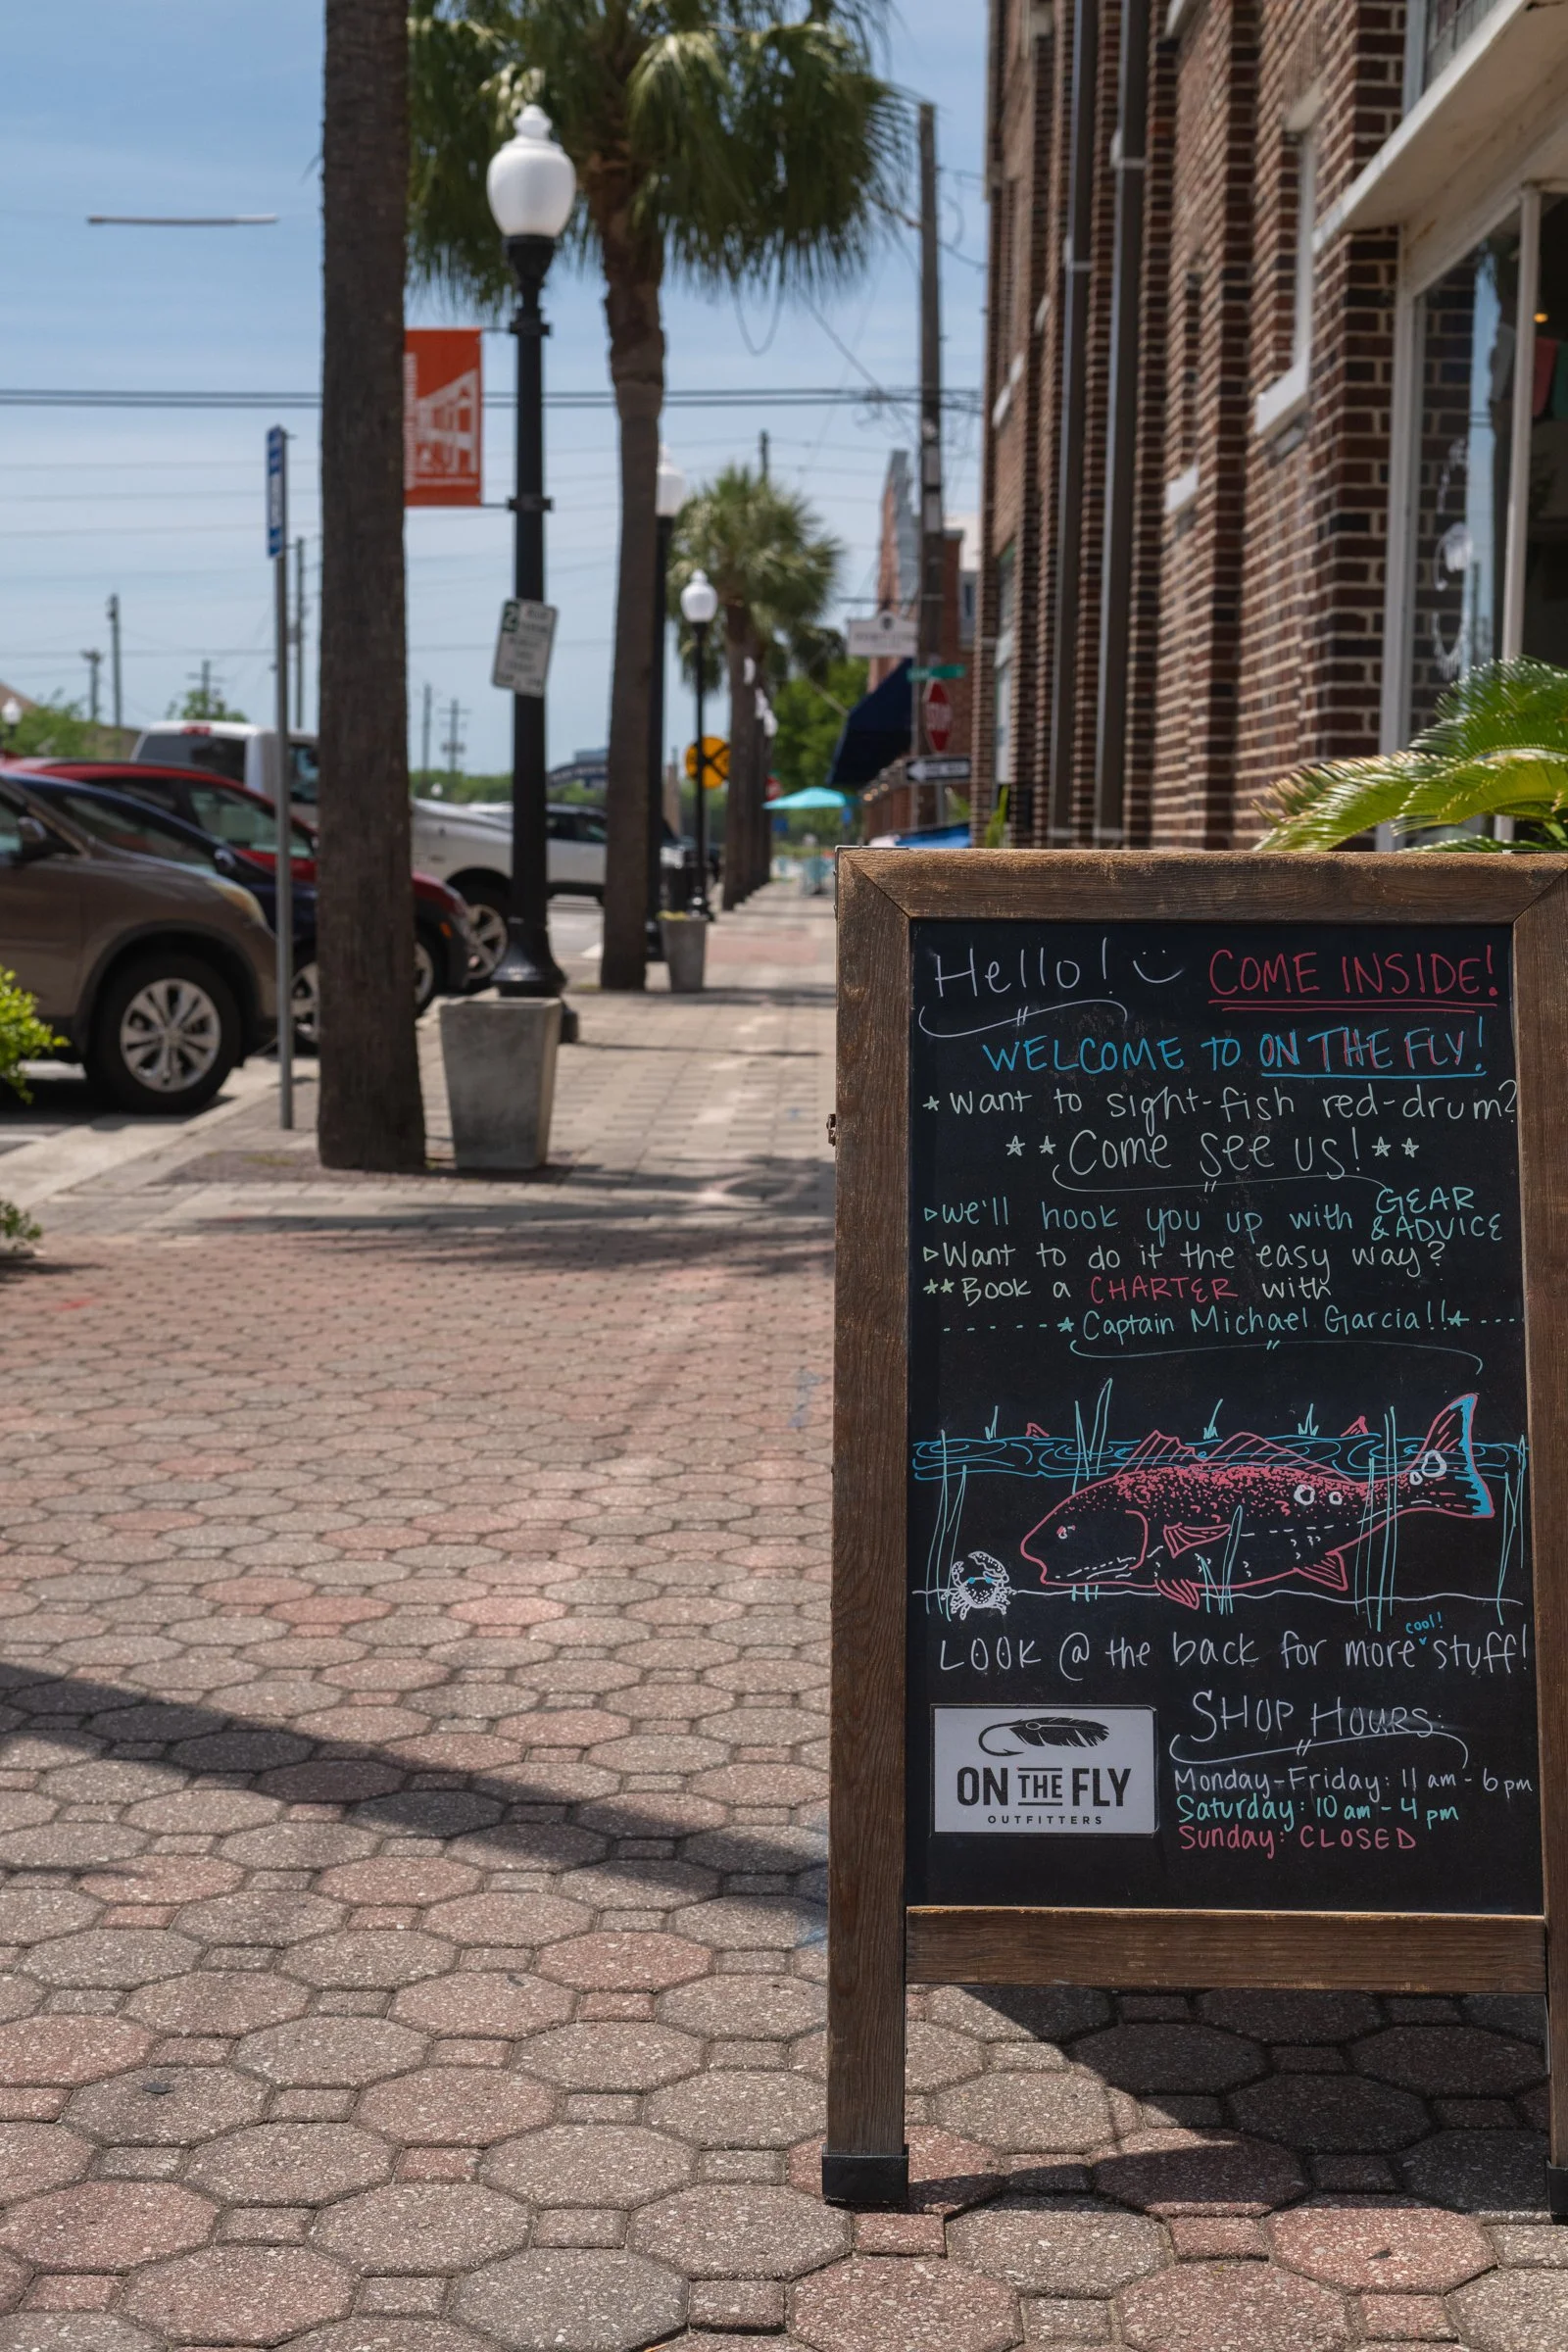 STOP
Hello! COME INSIDE!
WELCOME TO ON THE FLY!
*Want to sight-fish red-drum?
**Come see us!**
▷we'll hook you up with GEAR & ADVICE
▷Want to do it the easy way?
**Book a CHARTER with
------*Captain Michael Garcia!!*----
LOOK @ the back for more cool! stuff!
ON THE FLY
OUTFITTERS
SHOP HOURS:
Monday-Friday: 11 am - 6 pm
Saturday: 10 am - 4 pm
Sunday: CLOSED